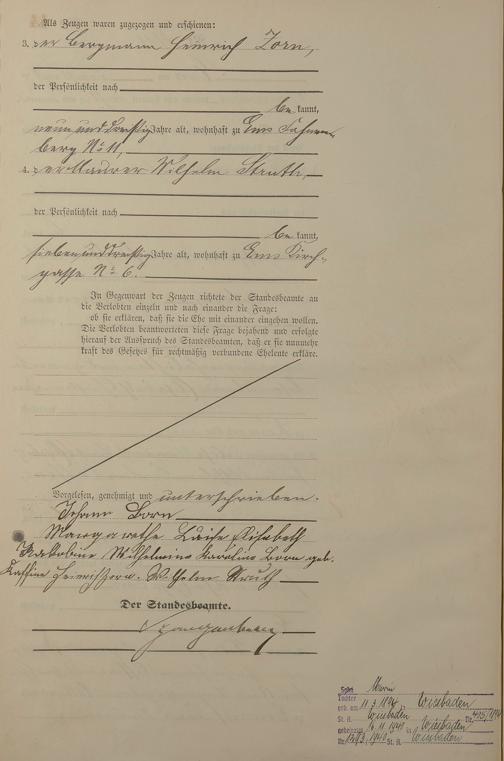 Als Zeugen waren zugezogen und erschienen:
3. der Bergmann Heinrich Zorn,
der Persönlichkeit nach
be kannt,
neununddreißig Jahre alt, wohnhaft zu Ems
berg No 11,
4. der Maurer Wilhelm Struth,
der Persönlichkeit nach
be kannt,
siebenunddreißig Jahre alt, wohnhaft zu Ems Kirch-
gasse No 6.
In Gegenwart der Zeugen richtete der Standesbeamte an
die Verlobten einzeln und nach einander die Frage:
ob sie erklären, daß sie die Ehe mit einander eingehen wollen.
Die Verlobten beantworteten diese Frage bejahend und erfolgte
hierauf der Ausspruch des Standesbeamten, daß er sie nunmehr
kraft des Gesetzes für rechtmäßig verbundene Eheleute erkläre.
Vorgelesen, genehmigt und unterschrieben.
Johann Born
Margarethe Luise Elisabeth
Jakobine Wilhelmine Karoline Born geb.
Heinrich Zorn. Wilhelm Struth
Der Standesbeamte.
Spangenberg
Maria
Tochter
geb. am 11.3.1894 in Wiesbaden
St. A. Wiesbaden Nr.
in Wiesbaden
St. A. Wiesbaden